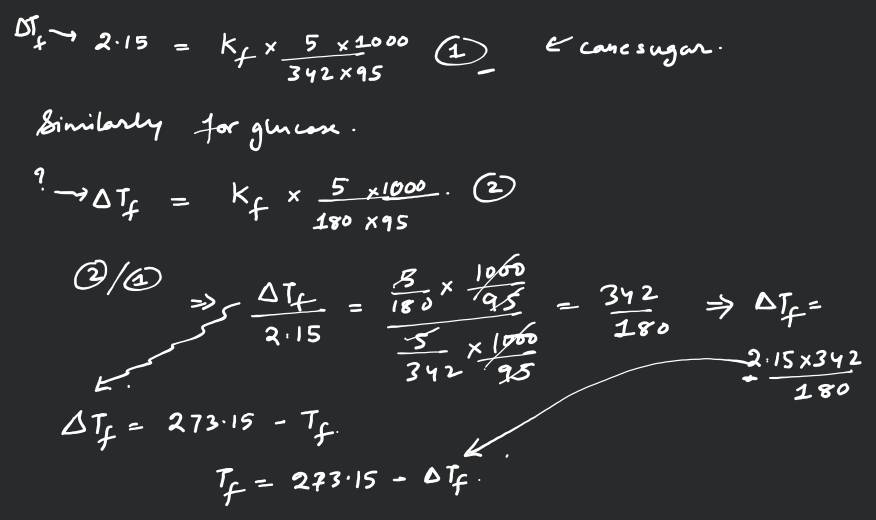 ΔTf → 2.15 = Kf × 5 × 1000 / 342 × 95 ① ← cane sugar.
Similarly for glucose.
? → ΔTf = Kf × 5 × 1000 / 180 × 95 . ②
②/① ⇒ ΔTf / 2.15 = (5/180 × 1000/95) / (5/342 × 1000/95) = 342/180 ⇒ ΔTf =
2.15 × 342 / 180
ΔTf = 273.15 - Tf.
Tf = 273.15 - ΔTf.